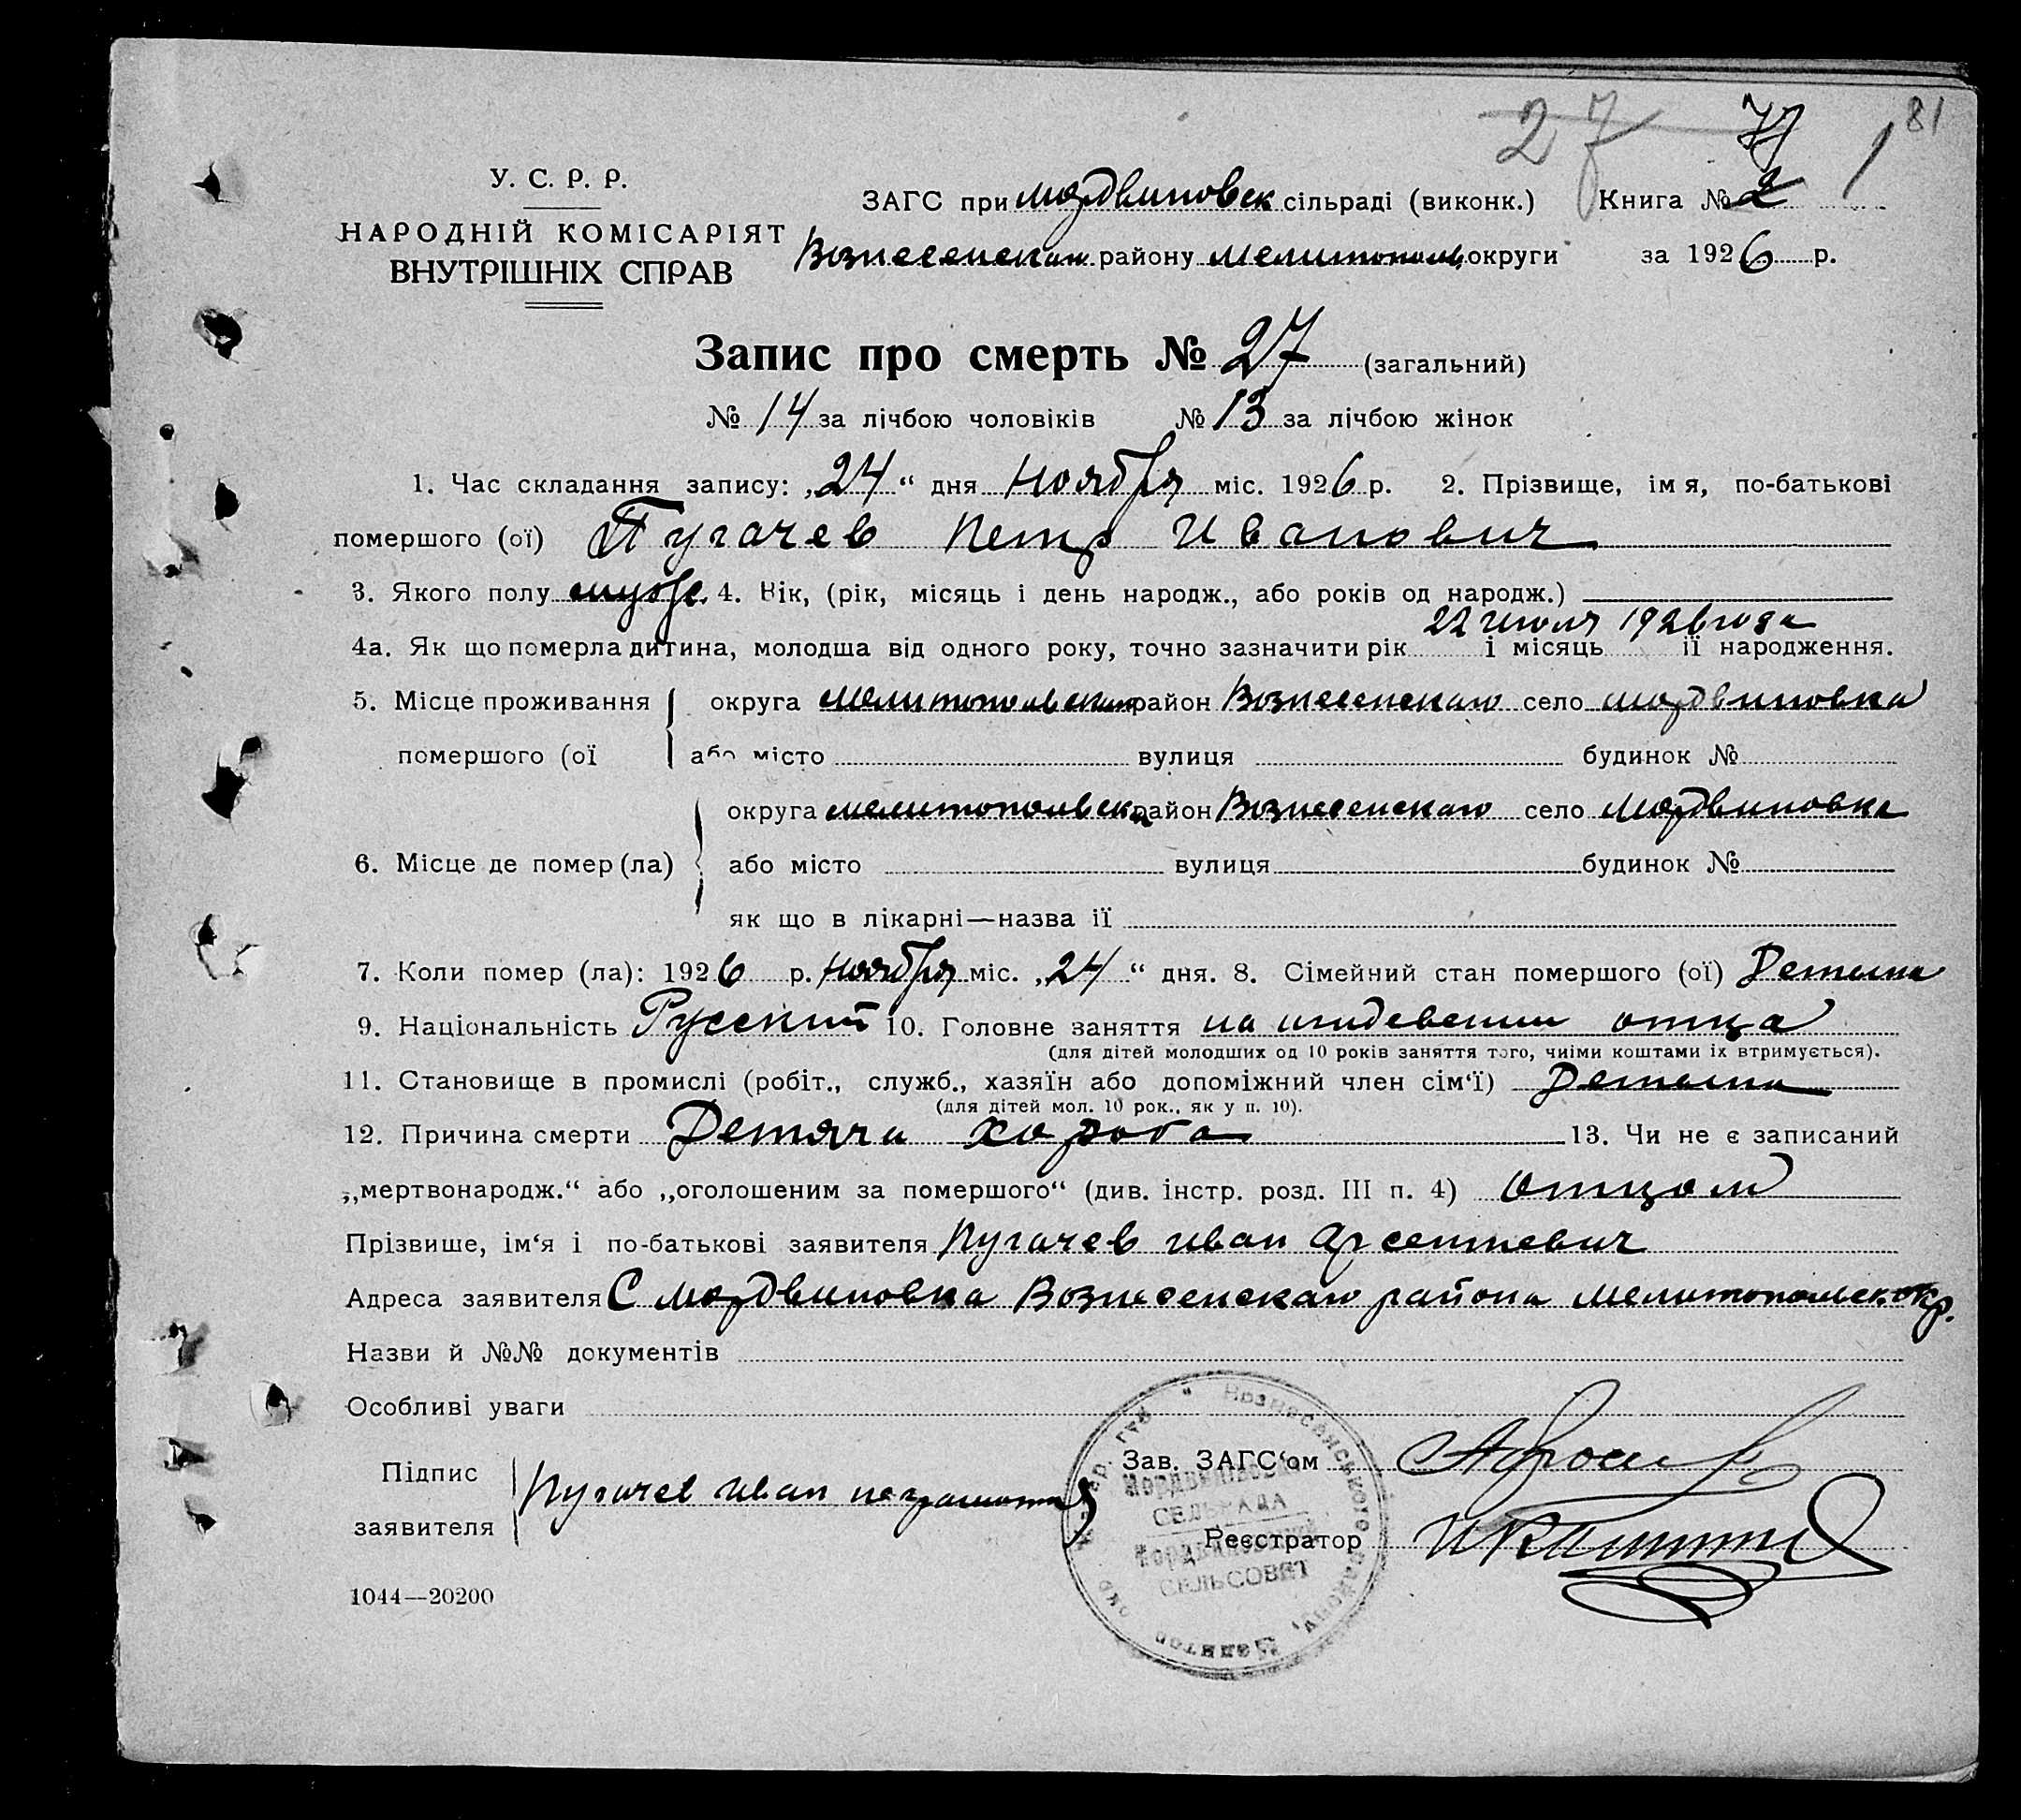 27 77 1 81
У. С. Р. Р.
НАРОДНІЙ КОМІСАРІЯТ
ВНУТРІШНІХ СПРАВ
ЗАГС при Мордвиновск сільраді (виконк.) Книга № 2
Вознесенскаго району Мелитополь округи за 1926 р.
Запис про смерть № 27 (загальний)
№ 14 за лічбою чоловіків № 13 за лічбою жінок
1. Час складання запису: „24“ дня Ноября міс. 1926 р. 2. Прізвище, імя, по-батькові
помершого (ої) Пугачев Петр Иванович
3. Якого полу муж. 4. Вік, (рік, місяць і день народж., або років од народж.)
22 Июля 1926 года
4а. Як що померла дитина, молодша від одного року, точно зазначити рік і місяць її народження.
5. Місце проживання округа Мелитопольскаго район Вознесенскаго село Мордвиновка
помершого (ої або місто вулиця будинок №
округа Мелитопольска район Вознесенскаго село Мордвиновка
6. Місце де помер (ла) або місто вулиця будинок №
як що в лікарні—назва її
7. Коли помер (ла): 1926 р. Ноября міс. „24“ дня. 8. Сімейний стан помершого (ої)
9. Національність Русский 10. Головне заняття на иждевении отца
(для дітей молодших од 10 років заняття того, чиїми коштами їх втримується).
11. Становище в промислі (робіт., служб., хазяїн або допоміжний член сім‘ї)
(для дітей мол. 10 рок., як у п. 10).
12. Причина смерти Детяча хороба 13. Чи не є записаний
„мертвонародж.“ або „оголошеним за помершого“ (див. інстр. розд. III п. 4) Отцом
Прізвище, ім‘я і по-батькові заявителя Пугачев Иван Арсентиевич
Адреса заявителя С Мордвиновка Вознесенскаго района Мелитопольск. окр.
Назви й №№ документів
Особливі уваги
Підпис
заявителя
Пугачев Иван неграмотн
Зав. ЗАГС‘ом
Реєстратор
Вознесенського району, Мелитоп
Мордвинівська
СЕЛЬРАДА
Мордвиновский
СЕЛЬСОВЕТ
1044—20200